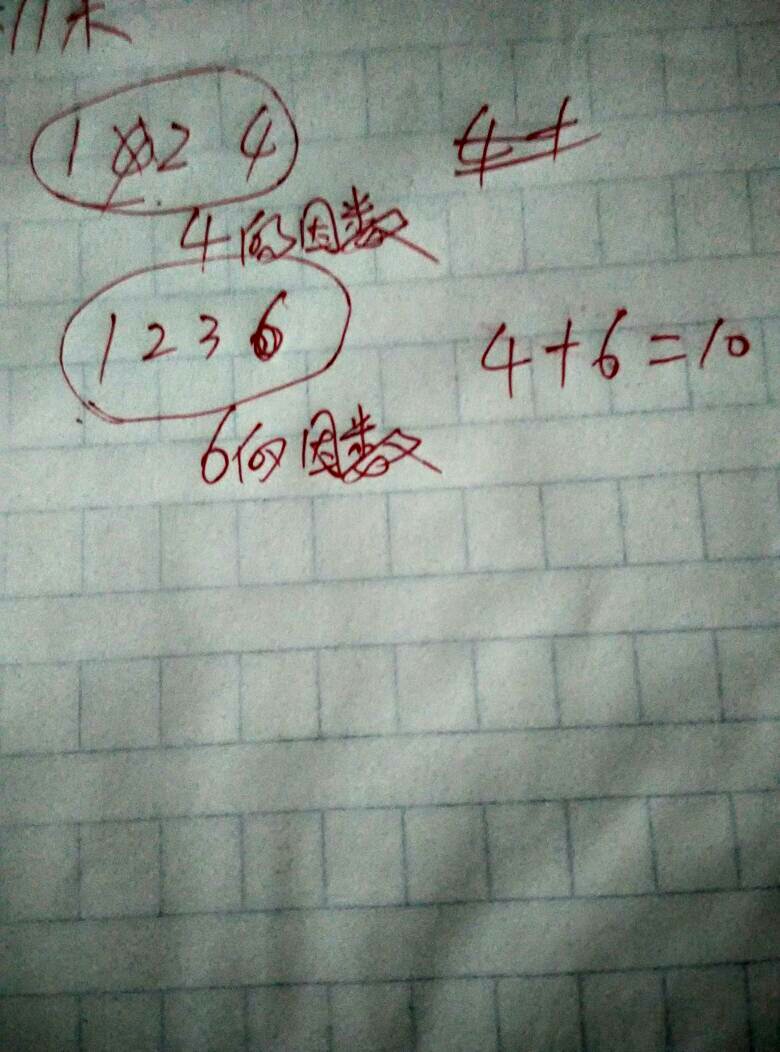 1 2 4
4的因数
1 2 3 6
4+6=10
6的因数